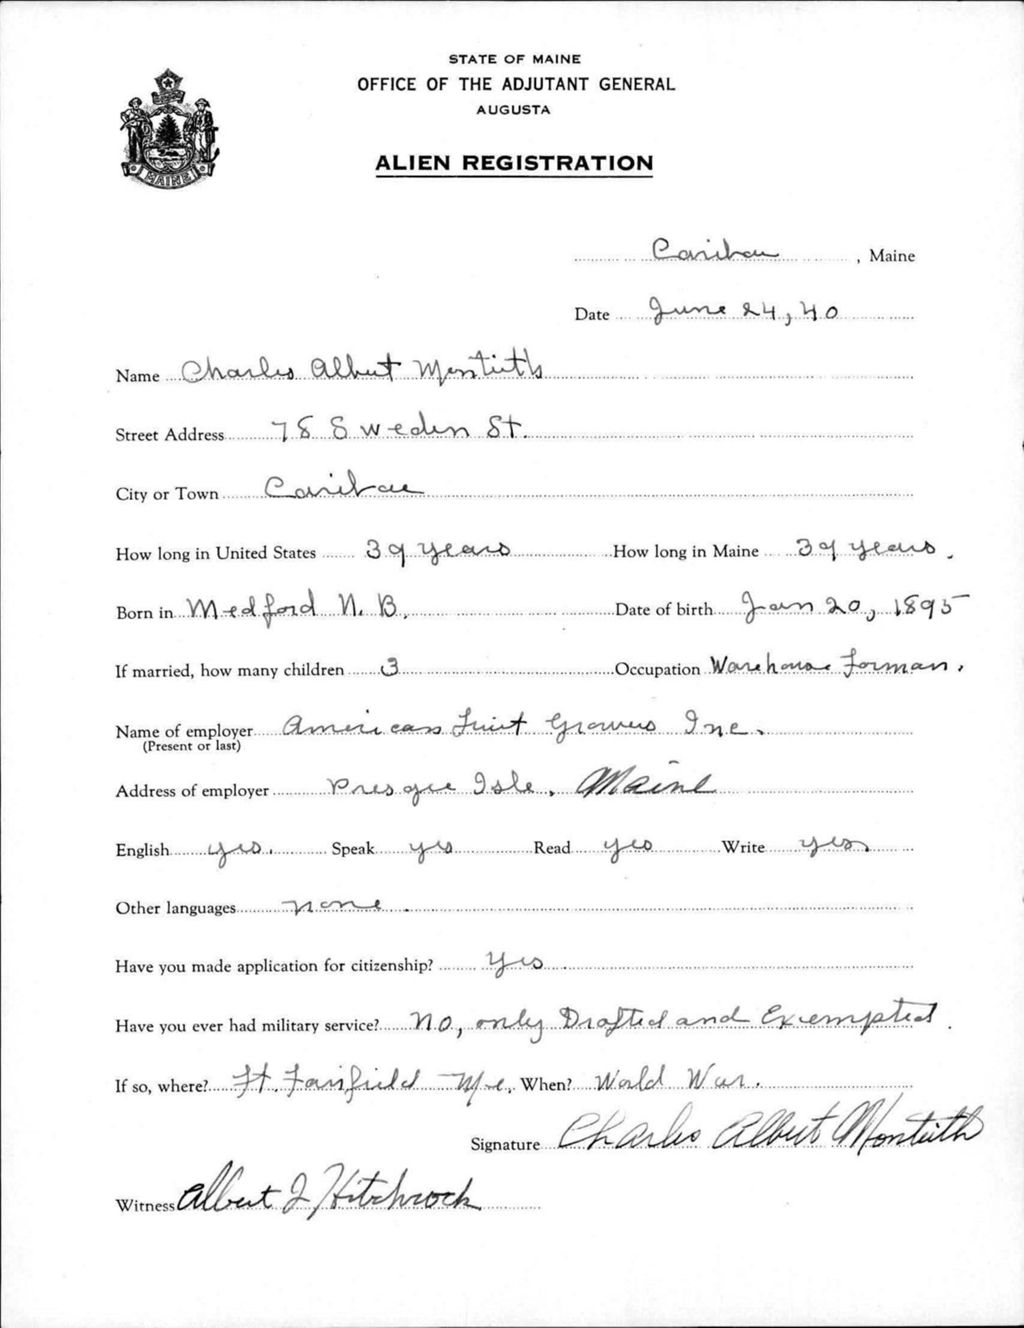 STATE OF MAINE
OFFICE OF THE ADJUTANT GENERAL
AUGUSTA
ALIEN REGISTRATION
MAINE
Caribou, Maine
Date June 24, 40
Name Charles Albert Montieth
Street Address 78 Sweden St.
City or Town Caribou
How long in United States 39 years How long in Maine 39 years.
Born in Medford N. B. Date of birth Jan 20, 1895
If married, how many children 3 Occupation Warehouse Forman.
Name of employer American Fruit Growers Inc.
(Present or last)
Address of employer Presque Isle, Maine
English yes. Speak yes Read yes Write yes
Other languages none.
Have you made application for citizenship? Yes.
Have you ever had military service? No, only Drafted and Exempted.
If so, where? Ft. Fairfield Me. When? World War.
Signature Charles Albert Montieth
Witness Albert J Hitchcock